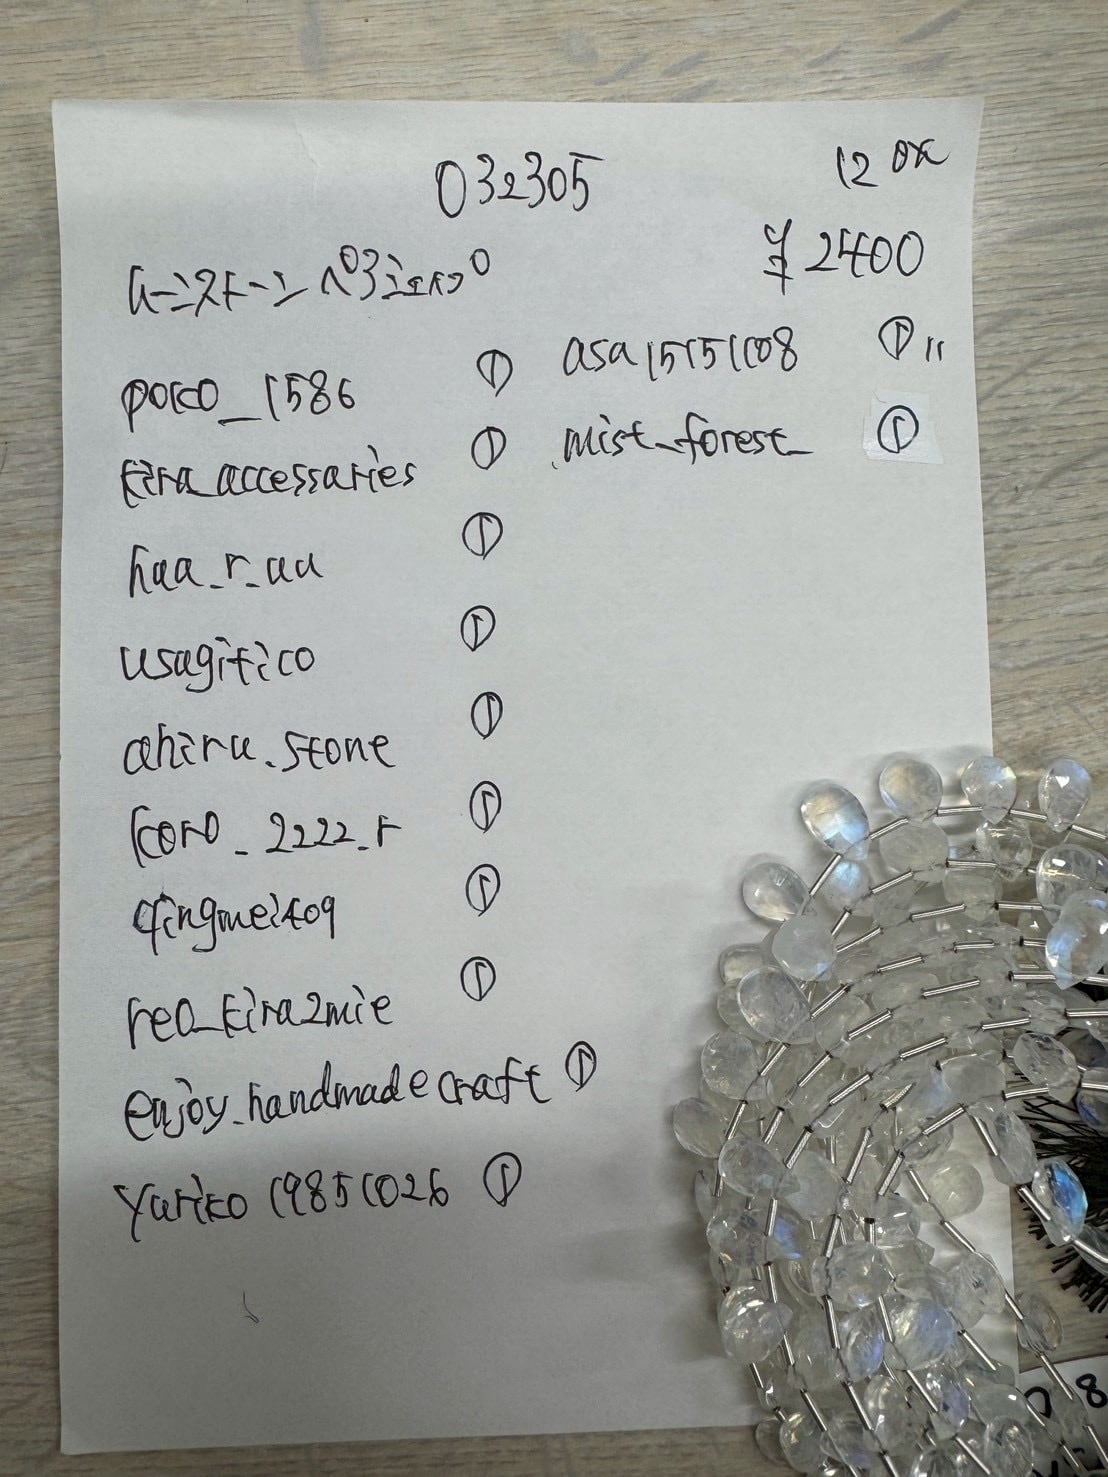 032305
12 ok
¥2400
ムーンストーン ペアシェイプ
poko_1586 ①
kira_accessaries ①
haa_r_aa ①
usagitico ①
ahiru.stone ①
koro_2222_r ①
qingmei409 ①
reo_kira2mie ①
enjoy_handmadecraft ①
yuriko19851026 ①
asa15151108 ① 11
mist_forest_ ①
08